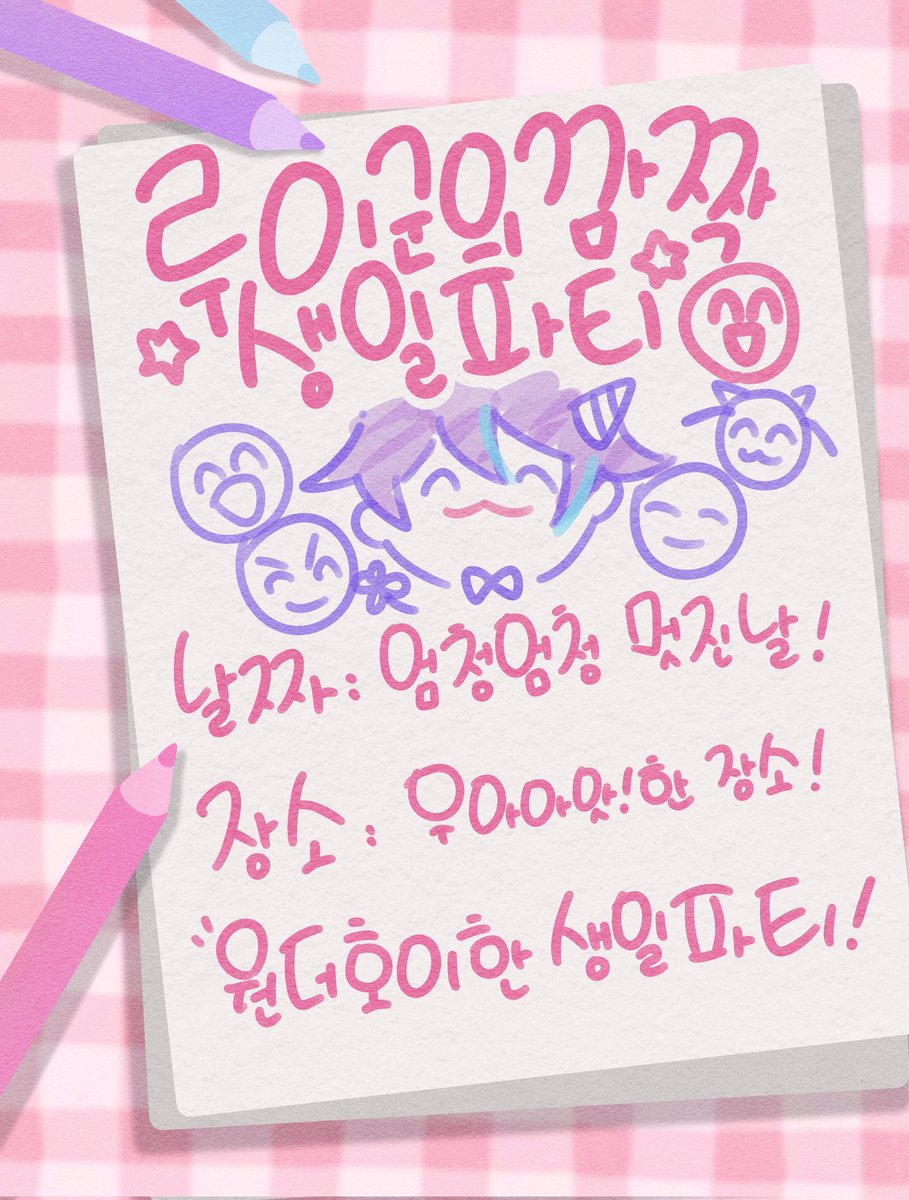 루이군의 깜짝
생일파티
날짜: 엄청엄청 멋진날!
장소: 우아아앗!한 장소!
원더호이한 생일파티!